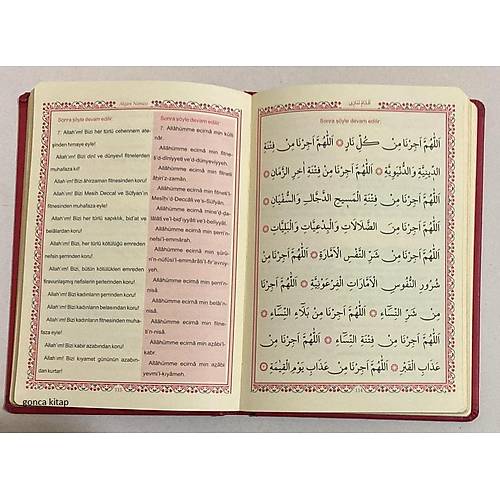 Akşam Namazı
Sonra şöyle devam edilir:
7. Allah'ım! Bizi her türlü cehennem ate-
şinden himaye eyle!
Allah'ım! Bizi dinî ve dünyevî fitnelerden
muhafaza kıl!
Allah'ım! Bizi âhirzaman fitnesinden koru!
Allah'ım! Bizi Mesih Deccal ve Süfyan'ın
fitnesinden muhafaza eyle!
Allah'ım! Bizi her türlü sapıklık, bid'at ve
belâlardan koru!
Allah'ım! Bizi, her türlü kötülüğü emreden
nefsin şerrinden koru!
Allah'ım! Bizi, bütün kötülükleri emreden
firavunlaşmış nefislerin şerlerinden koru!
Allah'ım! Bizi kadınların şerrinden koru!
Allah'ım! Bizi kadınların belâsından koru!
Allah'ım! Bizi kadınların fitnesinden muha-
faza eyle!
Allah'ım! Bizi kabir azabından koru!
Allah'ım! Bizi kıyamet gününün azabın-
dan kurtar!
Sonra şöyle devam edilir:
7. Allâhümme ecirnâ min külli
nâr.
Allâhümme ecirnâ min fitne-
ti'd-dîniyyeti ve'd-dünyeviyyeh.
Allâhümme ecirnâ min fitneti
âhiri'z-zamân.
Allâhümme ecirnâ min fitneti'l-
Mesîhi'd-Deccâli ve's-Süfyân.
Allâhümme ecirnâ mine'd-da-
lâlâti ve'l-bid'iyyâti ve'l-beliyyât.
Allâhümme ecirnâ min şerri'n-
nefsi'l-emmârah.
Allâhümme ecirnâ min şürû-
ri'n-nüfûsi'l-emmârâti'l-fir'avniy-
yeh.
Allâhümme ecirnâ min şerri'n-
nisâ.
Allâhümme ecirnâ min belâi'n-
nisâ.
Allâhümme ecirnâ min fitne-
ti'n-nisâ.
Allâhümme ecirnâ min azâbi'l-
kabr.
Allâhümme ecirnâ min azâbi
yevmi'l-kıyâmeh.
Sonra şöyle devam edilir:
اَللّٰهُمَّ اَجِرْنَا مِنْ كُلِّ نَارٍ اَللّٰهُمَّ اَجِرْنَا مِنْ فِتْنَةِ
الدِّينِيَّةِ وَالدُّنْيَوِيَّةِ اَللّٰهُمَّ اَجِرْنَا مِنْ فِتْنَةِ اٰخِرِ الزَّمَانِ
اَللّٰهُمَّ اَجِرْنَا مِنْ فِتْنَةِ الْمَسِيحِ الدَّجَّالِ وَالسُّفْيَانِ
اَللّٰهُمَّ اَجِرْنَا مِنَ الضَّلَالَاتِ وَالْبِدْعِيَّاتِ وَالْبَلِيَّاتِ
اَللّٰهُمَّ اَجِرْنَا مِنْ شَرِّ النَّفْسِ الْاَمَّارَةِ اَللّٰهُمَّ اَجِرْنَا مِنْ
شُرُورِ النُّفُوسِ الْاَمَّارَاتِ الْفِرْعَوْنِيَّةِ اَللّٰهُمَّ اَجِرْنَا
مِنْ شَرِّ النِّسَاءِ اَللّٰهُمَّ اَجِرْنَا مِنْ بَلَاءِ النِّسَاءِ
اَللّٰهُمَّ اَجِرْنَا مِنْ فِتْنَةِ النِّسَاءِ اَللّٰهُمَّ اَجِرْنَا مِنْ
عَذَابِ الْقَبْرِ اَللّٰهُمَّ اَجِرْنَا مِنْ عَذَابِ يَوْمِ الْقِيٰمَةِ
gonca kitap